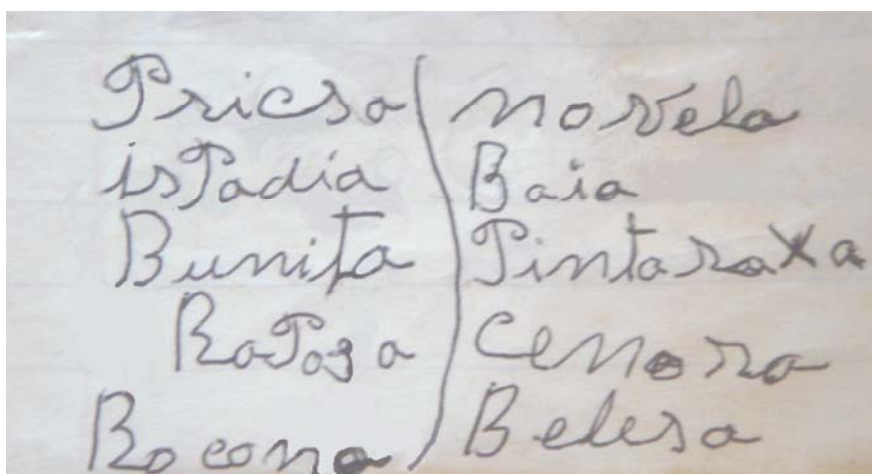 Pricsa
isPadia
Bunita
RaPoza
Rocona
novela
Baia
Pintaraxa
Cenora
Belesa